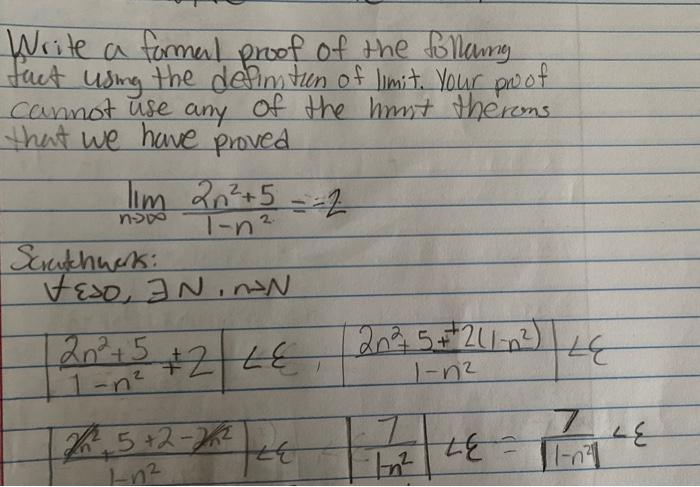 Write a formal proof of the following
fact using the definition of limit. Your proof
cannot use any of the limit therems
that we have proved
lim n→∞ (2n²+5)/(1-n²) = -2
Scratchwork:
∀ε>0, ∃N, n>N
|(2n²+5)/(1-n²) + 2| < ε, |(2n²+5+2(1-n²))/(1-n²)| < ε
|(2n²+5+2-2n²)/(1-n²)| < ε |7/(1-n²)| < ε = 7/|1-n²| < ε